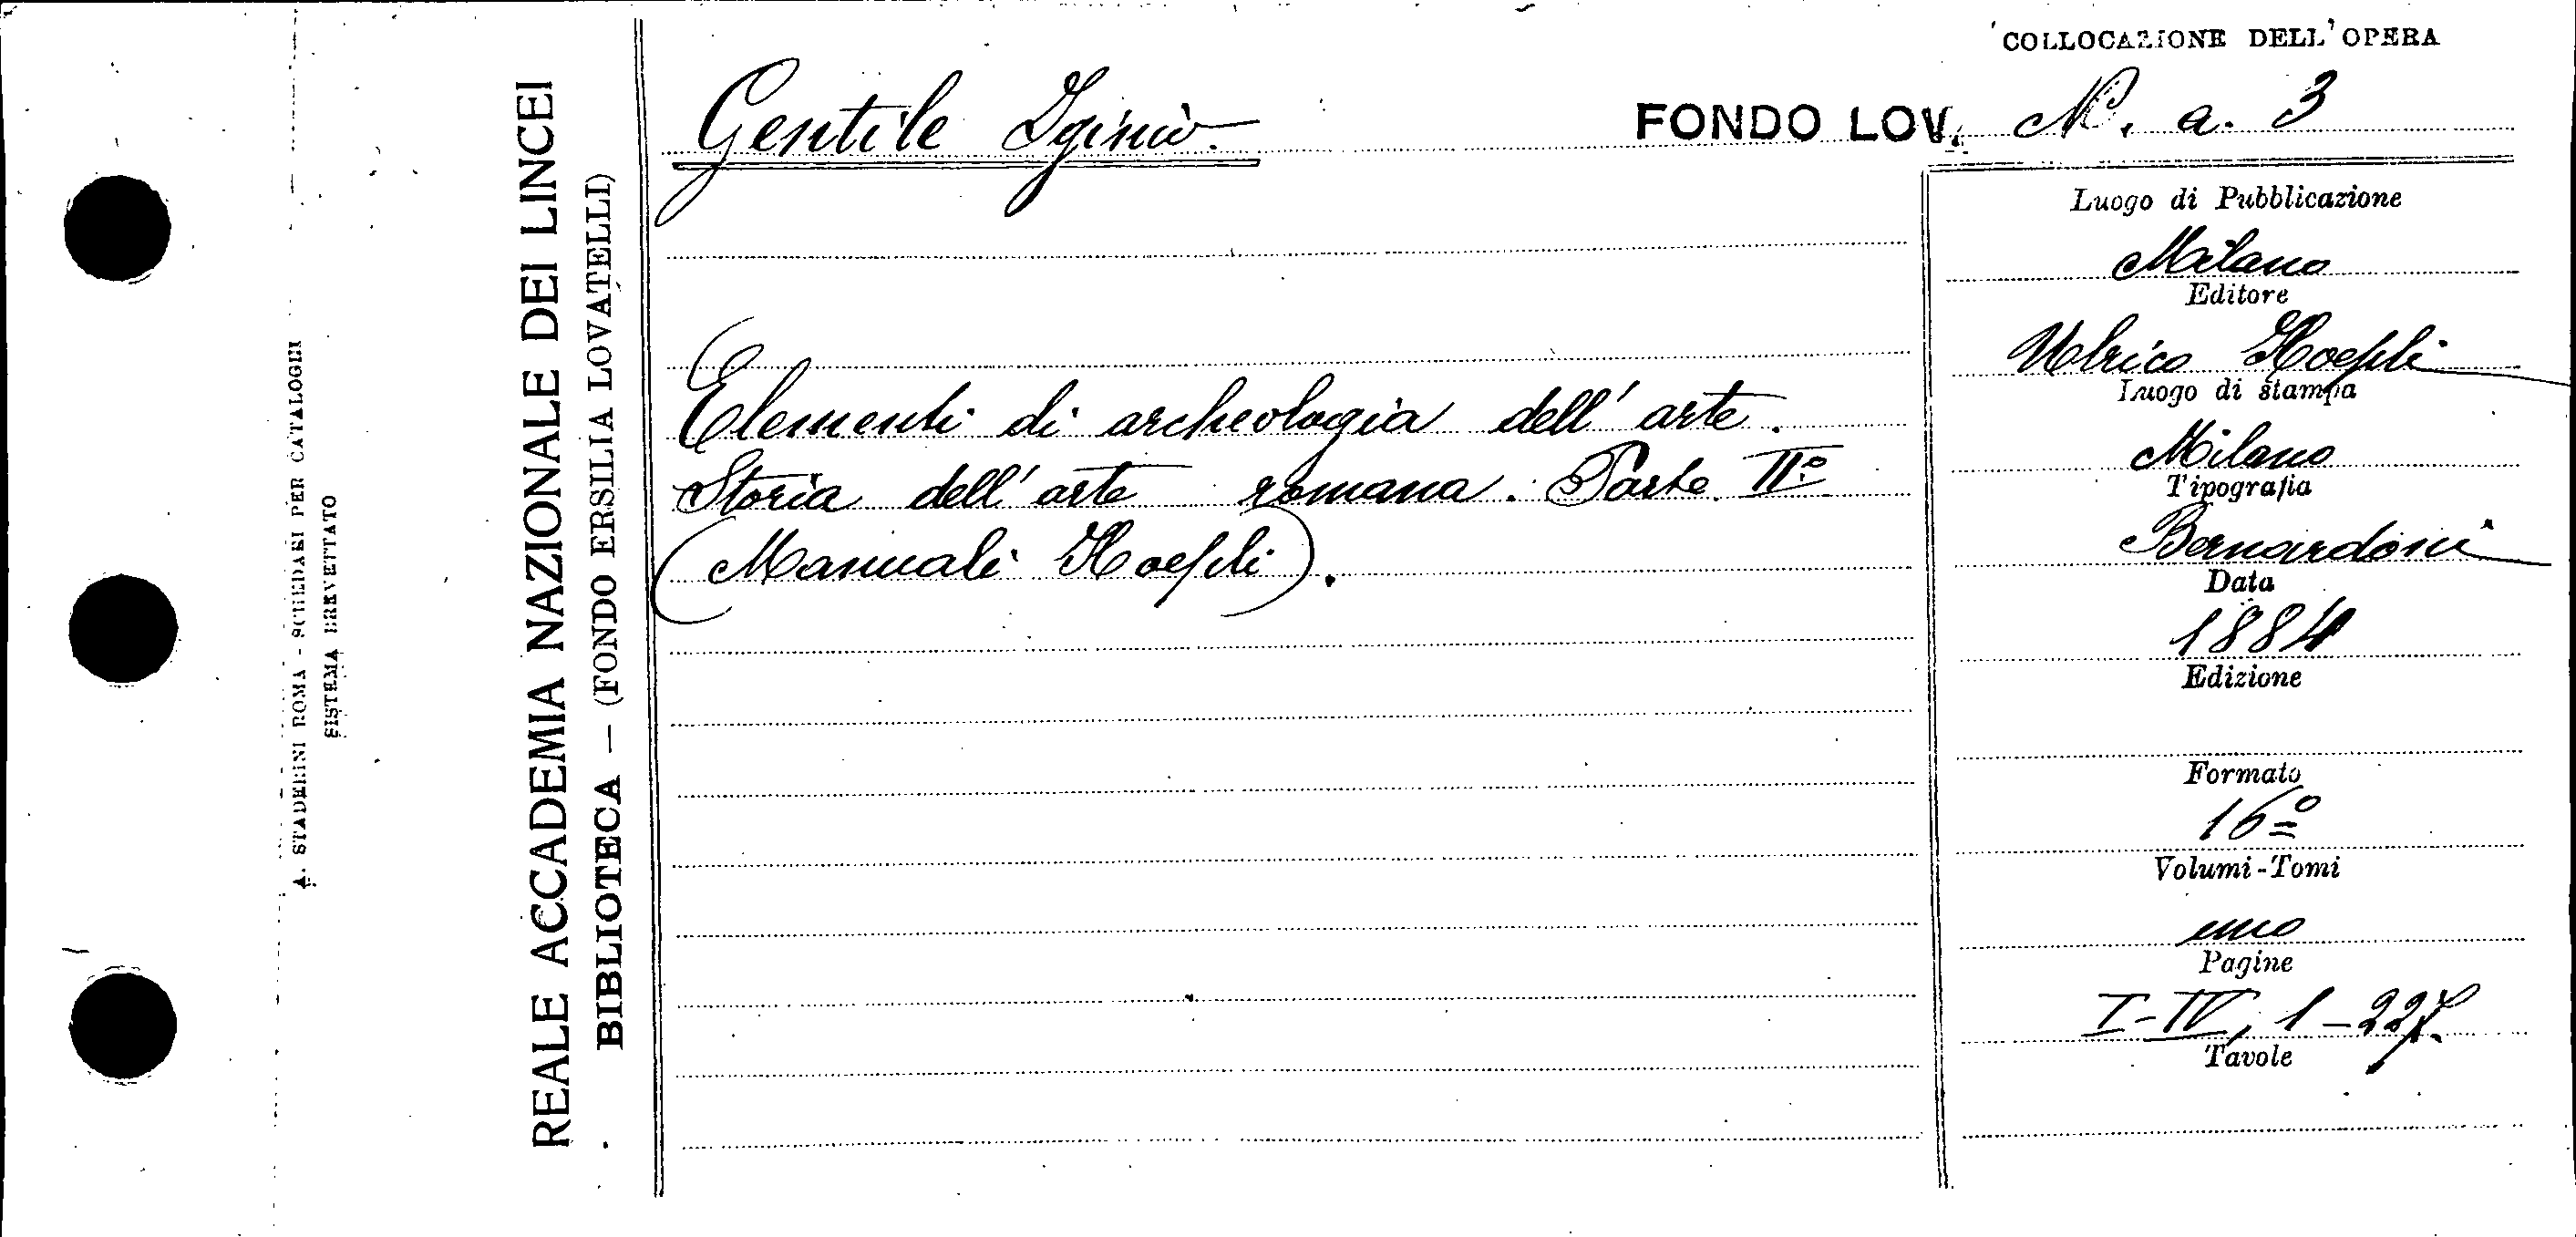 A. STADERINI ROMA - SCHEDARI PER CATALOGHI
SISTEMA BREVETTATO
REALE ACCADEMIA NAZIONALE DEI LINCEI
BIBLIOTECA — (FONDO ERSILIA LOVATELLI)
COLLOCAZIONE DELL'OPERA
Gentile Iginio.
FONDO LOV. N. a. 3
Elementi di archeologia dell'arte.
Storia dell'arte romana. Parte IIº
(Manuali Hoepli).
Luogo di Pubblicazione
Milano
Editore
Ulrico Hoepli
Luogo di stampa
Milano
Tipografia
Bernardoni
Data
1884
Edizione
Formato
16º
Volumi-Tomi
uno
Pagine
I-IV, 1-227.
Tavole